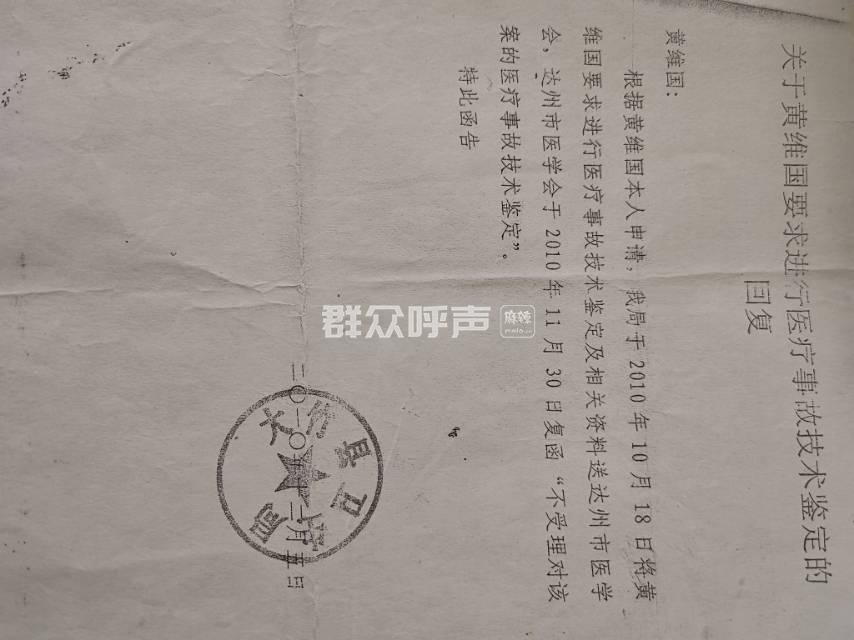 关于黄维国要求进行医疗事故技术鉴定的
回复
黄维国：
根据黄维国本人申请，我局于2010年10月18日将黄
维国要求进行医疗事故技术鉴定及相关资料送达州市医学
会，达州市医学会于2010年11月30日复函“不受理对该
案的医疗事故技术鉴定”。
特此函告
大竹县卫生局
二〇一〇年十二月五日
群众呼声
麻辣
mala.cn